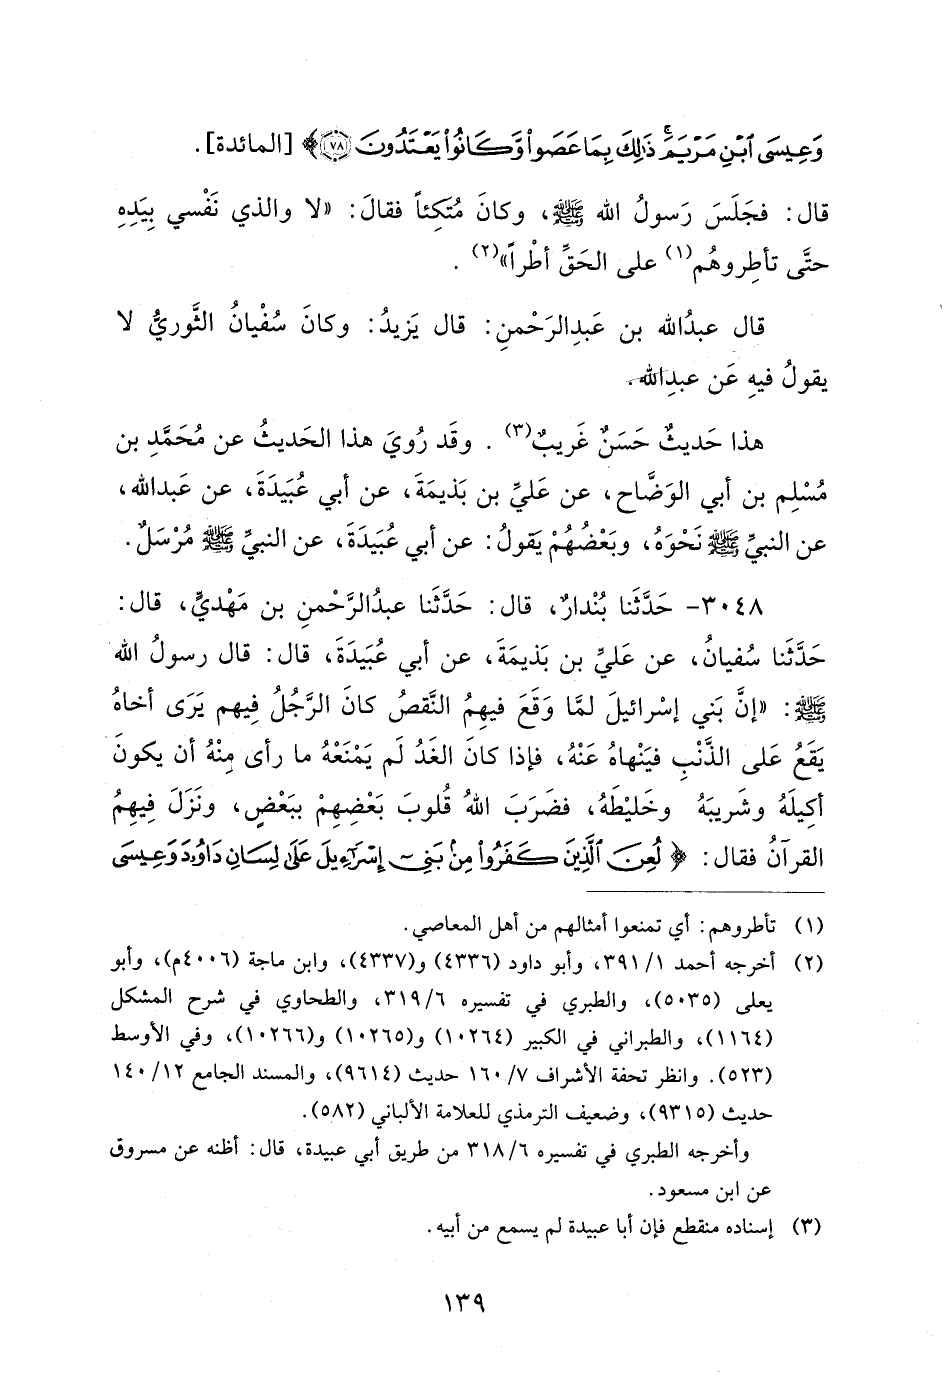 وَعِيسَى ٱبْنِ مَرْيَمَ ۚ ذَٰلِكَ بِمَا عَصَوا۟ وَّكَانُوا۟ يَعْتَدُونَ (٧٨)﴾ [المائدة].
قال: فجَلَسَ رَسولُ الله ﷺ، وكانَ مُتكِئاً فقالَ: «لا والذي نَفْسي بِيَدِهِ
حتَّى تأطِروهُم(١) على الحَقِّ أطْراً»(٢).
قال عبدُالله بن عَبدِالرَحْمنِ: قال يَزيدُ: وكانَ سُفْيانُ الثَّوريُّ لا
يقولُ فيهِ عَن عبدِالله.
هذا حَديثٌ حَسَنٌ غَريبٌ(٣). وقَد رُويَ هذا الحَديثُ عن مُحَمَّدِ بن
مُسْلِم بن أبي الوَضَّاح، عن عَليِّ بن بَذيمَةَ، عن أبي عُبَيدَةَ، عن عَبدالله،
عن النبيِّ ﷺ نَحْوَهُ، وبَعْضُهُمْ يَقولُ: عن أبي عُبَيدَةَ، عن النبيِّ ﷺ مُرْسَلٌ.
٣٠٤٨- حَدَّثَنا بُنْدارٌ، قال: حَدَّثَنا عبدُالرَّحْمنِ بن مَهْديٍّ، قال:
حَدَّثَنا سُفيانُ، عن عَليِّ بن بَذيمَةَ، عن أبي عُبَيدَةَ، قال: قال رسولُ الله
ﷺ: «إنَّ بَني إسْرائيلَ لمَّا وَقَعَ فيهِمُ النَّقصُ كانَ الرَّجُلُ فِيهم يَرَى أخاهُ
يَقَعُ عَلى الذَّنْبِ فيَنْهاهُ عَنْهُ، فإذا كانَ الغَدُ لَم يَمْنَعْهُ ما رأى مِنْهُ أن يكونَ
أكِيلَهُ وشَريبَهُ وخَليْطَهُ، فضَرَبَ اللهُ قُلوبَ بَعْضِهِمْ ببَعْضٍ، ونَزَلَ فِيهِمُ
القرآنُ فقال: ﴿لُعِنَ ٱلَّذِينَ كَفَرُوا۟ مِنۢ بَنِىٓ إِسْرَٰٓءِيلَ عَلَىٰ لِسَانِ دَاوُۥدَ وَعِيسَى
(١) تأطروهم: أي تمنعوا أمثالهم من أهل المعاصي.
(٢) أخرجه أحمد ١/ ٣٩١، وأبو داود (٤٣٣٦) و(٤٣٣٧)، وابن ماجة (٤٠٠٦م)، وأبو
يعلى (٥٠٣٥)، والطبري في تفسيره ٦/ ٣١٩، والطحاوي في شرح المشكل
(١١٦٤)، والطبراني في الكبير (١٠٢٦٤) و(١٠٢٦٥) و(١٠٢٦٦)، وفي الأوسط
(٥٢٣). وانظر تحفة الأشراف ٧/ ١٦٠ حديث (٩٦١٤)، والمسند الجامع ١٢/ ١٤٠
حديث (٩٣١٥)، وضعيف الترمذي للعلامة الألباني (٥٨٢).
وأخرجه الطبري في تفسيره ٦/ ٣١٨ من طريق أبي عبيدة، قال: أظنه عن مسروق
عن ابن مسعود.
(٣) إسناده منقطع فإن أبا عبيدة لم يسمع من أبيه.
١٣٩